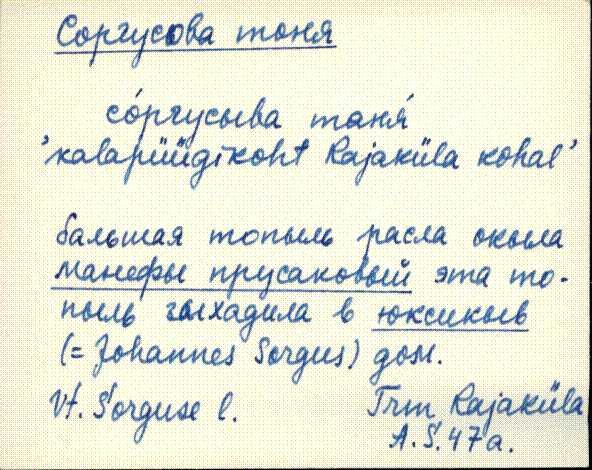 Соргусова тоня
со́ргусыва таня́
'kalapüügikoht Rajaküla kohal'
бальшая топыль расла окыла
манефы прусаковый эта то-
пыль выхадила в юксикыв
(= Johannes Sorgus) дом.
Vt. Sorguse l.
Trm Rajaküla
A.Š. 47a.